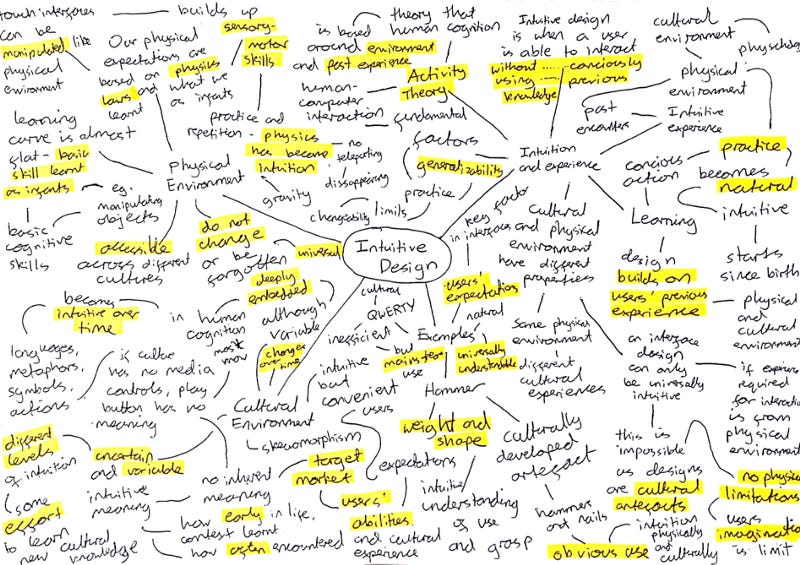 touch interfaces
can be
manipulated like
physical
environment
builds up
sensory-
motor
skills
Our physical
expectations are
based on physics
laws and what we
learnt as infants
learning
curve is almost
flat - basic
skill learnt
as infants
basic
cognitive
skills
eg.
manipulating
objects
Physical
Environment
practice and
repetition - physics
has become
intuition
no
teleporting
disappearing
gravity
accessible
across different
cultures
do not
change
or be
forgotten
universal
theory that
is based human cognition
around environment
and past experience
Activity
Theory
human-
computer
interaction
fundamental
factors
generalizability
practice
limits
changeability
Intuitive design
is when a user
is able to interact
without ..... consciously
using .... previous
knowledge
Intuition
and experience
cultural
environment
physical
environment
past
encounters
Intuitive
experience
practice
becomes
natural
concious
action
intuitive
Learning
starts
since birth
design
builds on
users' previous
experience
physical
and
cultural
environment
an interface
design
can only
be universally
intuitive
if
required
for interaction
is from
physical
environment
this is
impossible
as designs
are cultural
artefacts
no physical
limitations
users
imagination
is limit
Intuitive
Design
key factor
in interface
users'
expectations
Cultural
and physical
environment
have different
properties
Same physical
environment
different
cultural
experiences
becomes
intuitive over
time
deeply
embedded
in human
cognition
although
variable
changes
over time
must
know
languages,
metaphors,
symbols,
actions
if culture
has no media
controls, play
button has no
meaning
Cultural
Environment
skewomorphism
different
levels
of intuition
uncertain
and variable
some
effort
to learn
new cultural
knowledge
intuitive
meaning
no inherent
meaning
how early in life,
context learnt
how often encountered
target
market
users'
abilities
and cultural
experience
users
expectations
cultural
QWERTY
inefficient
but
mainstream
use
intuitive
but
convenient
Examples
natural
universally
understandable
Hammer
weight and
shape
intuitive
understanding
of use
and grasp
culturally
developed
artefact
hammers
and nails
obvious use
intuition
physically
and
culturally